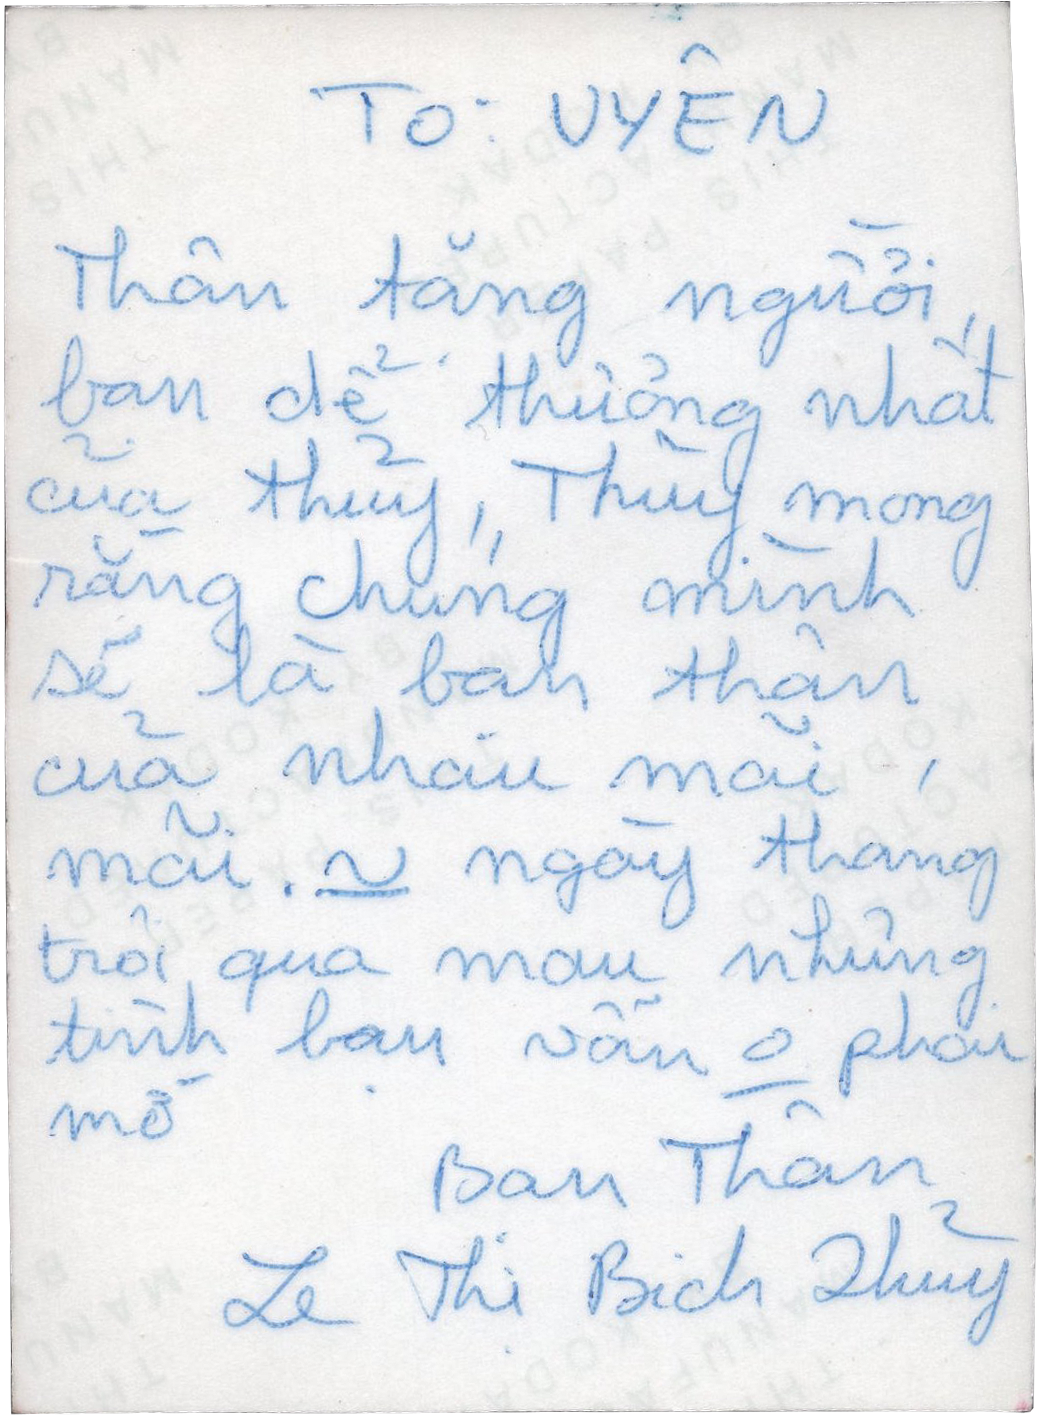 To: UYÊN
Thân tăng người,
ban dể thưởng nhất
của thủy, Thủy mong
rằng chúng mình
sẽ là ban thân
của nhau mãi,
mãi. ~ ngày thang
trôi qua mau nhưng
tình bạn vẫn o phai
mờ
Ban Thân
Le Thị Bich Thủy